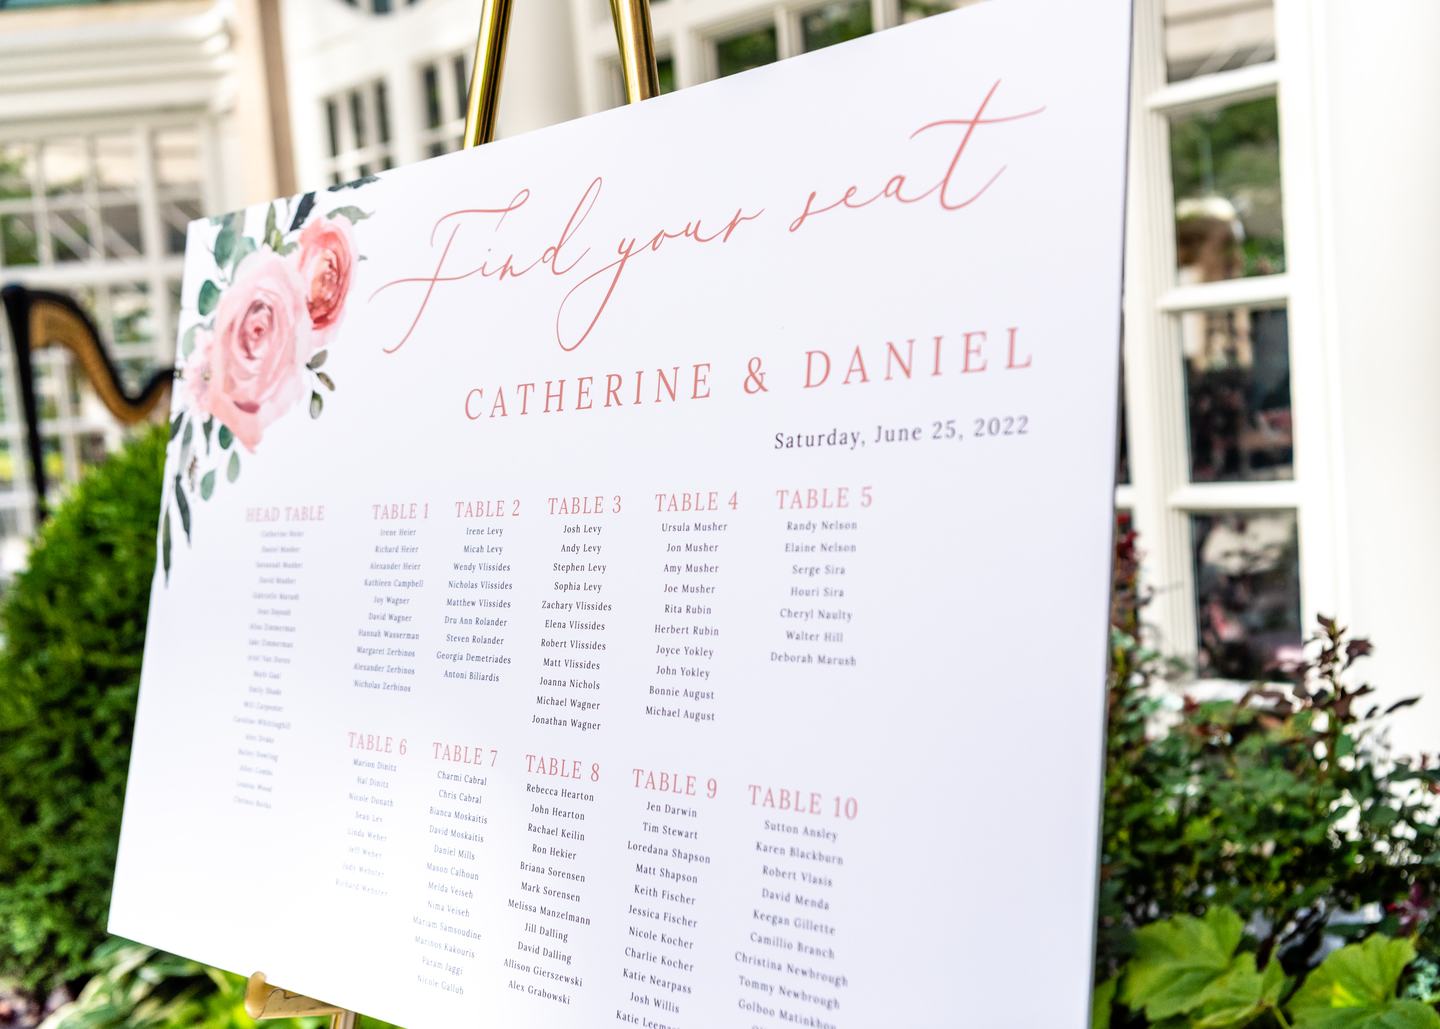 Find your seat
CATHERINE & DANIEL
Saturday, June 25, 2022
HEAD TABLE
Catherine Heier
Daniel Musher
Savannah Musher
David Musher
Gabrielle Marush
Alisa Zimmerman
Jake Zimmerman
Emily Shade
Will Carpenter
Caroline Whittinghill
Alex Drake
Leanna Wood
TABLE 1
Irene Heier
Richard Heier
Alexander Heier
Kathleen Campbell
Joy Wagner
David Wagner
Hannah Wasserman
Margaret Zerbinos
Alexander Zerbinos
Nicholas Zerbinos
TABLE 2
Irene Levy
Micah Levy
Wendy Vlissides
Nicholas Vlissides
Matthew Vlissides
Dru Ann Rolander
Steven Rolander
Georgia Demetriades
Antoni Biliardis
TABLE 3
Josh Levy
Andy Levy
Stephen Levy
Sophia Levy
Zachary Vlissides
Elena Vlissides
Robert Vlissides
Matt Vlissides
Joanna Nichols
Michael Wagner
Jonathan Wagner
TABLE 4
Ursula Musher
Jon Musher
Amy Musher
Joe Musher
Rita Rubin
Herbert Rubin
Joyce Yokley
John Yokley
Bonnie August
Michael August
TABLE 5
Randy Nelson
Elaine Nelson
Serge Sira
Houri Sira
Cheryl Naulty
Walter Hill
Deborah Marush
TABLE 6
Marion Dinitz
Hal Dinitz
Nicole Donath
Sean Lev
Linda Weber
Jeff Weber
Judy Webster
Richard Webster
TABLE 7
Charmi Cabral
Chris Cabral
Bianca Moskaitis
David Moskaitis
Daniel Mills
Mason Calhoun
Melda Veiseh
Nima Veiseh
Mariam Samsoudine
Marinos Kakouris
Param Jaggi
Nicole Gallub
TABLE 8
Rebecca Hearton
John Hearton
Rachael Keilin
Ron Hekier
Briana Sorensen
Mark Sorensen
Melissa Manzelmann
Jill Dalling
David Dalling
Allison Gierszewski
Alex Grabowski
TABLE 9
Jen Darwin
Tim Stewart
Loredana Shapson
Matt Shapson
Keith Fischer
Jessica Fischer
Nicole Kocher
Charlie Kocher
Katie Nearpass
Josh Willis
Katie
TABLE 10
Sutton Ansley
Karen Blackburn
Robert Vlasis
David Menda
Keegan Gillette
Camillio Branch
Christina Newbrough
Tommy Newbrough
Golboo